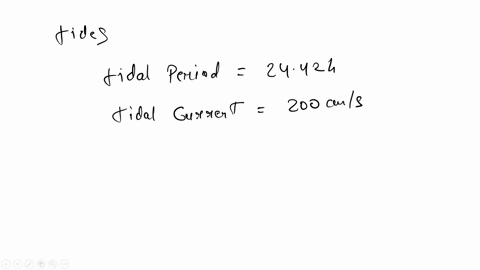 tides
tidal Period = 24.42h
tidal Current = 200 cm/s